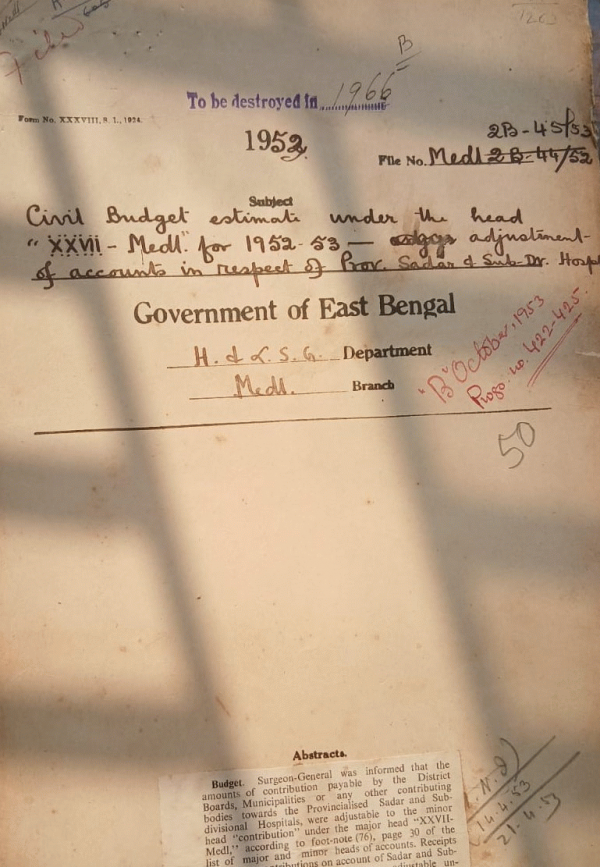 Filed
B
1203
To be destroyed in 1966
Form No. XXXVIII, S. I., 1924.
1952
2B-45/53
File No. Medl 2B-44/52
Subject
Civil Budget estimate under the head
"XXVII - Medl." for 1952-53 — adjustment
of accounts in respect of Prov. Sadar & Sub-Dv. Hospl
Government of East Bengal
H. & L. S. G. Department
Medl. Branch
"B" October, 1953
Progs. no. 422-425.
50
Abstracts.
Budget. Surgeon-General was informed that the
amounts of contribution payable by the District
Boards, Municipalities or any other contributing
bodies towards the Provincialised Sadar and Sub-
divisional Hospitals, were adjustable to the minor
head "contribution" under the major head "XXVII-
Medl," according to foot-note (76), page 30 of the
list of major and minor heads of accounts. Receipts
contributions on account of Sadar and Sub-
adjustable un-
14.4.53
21.4.53